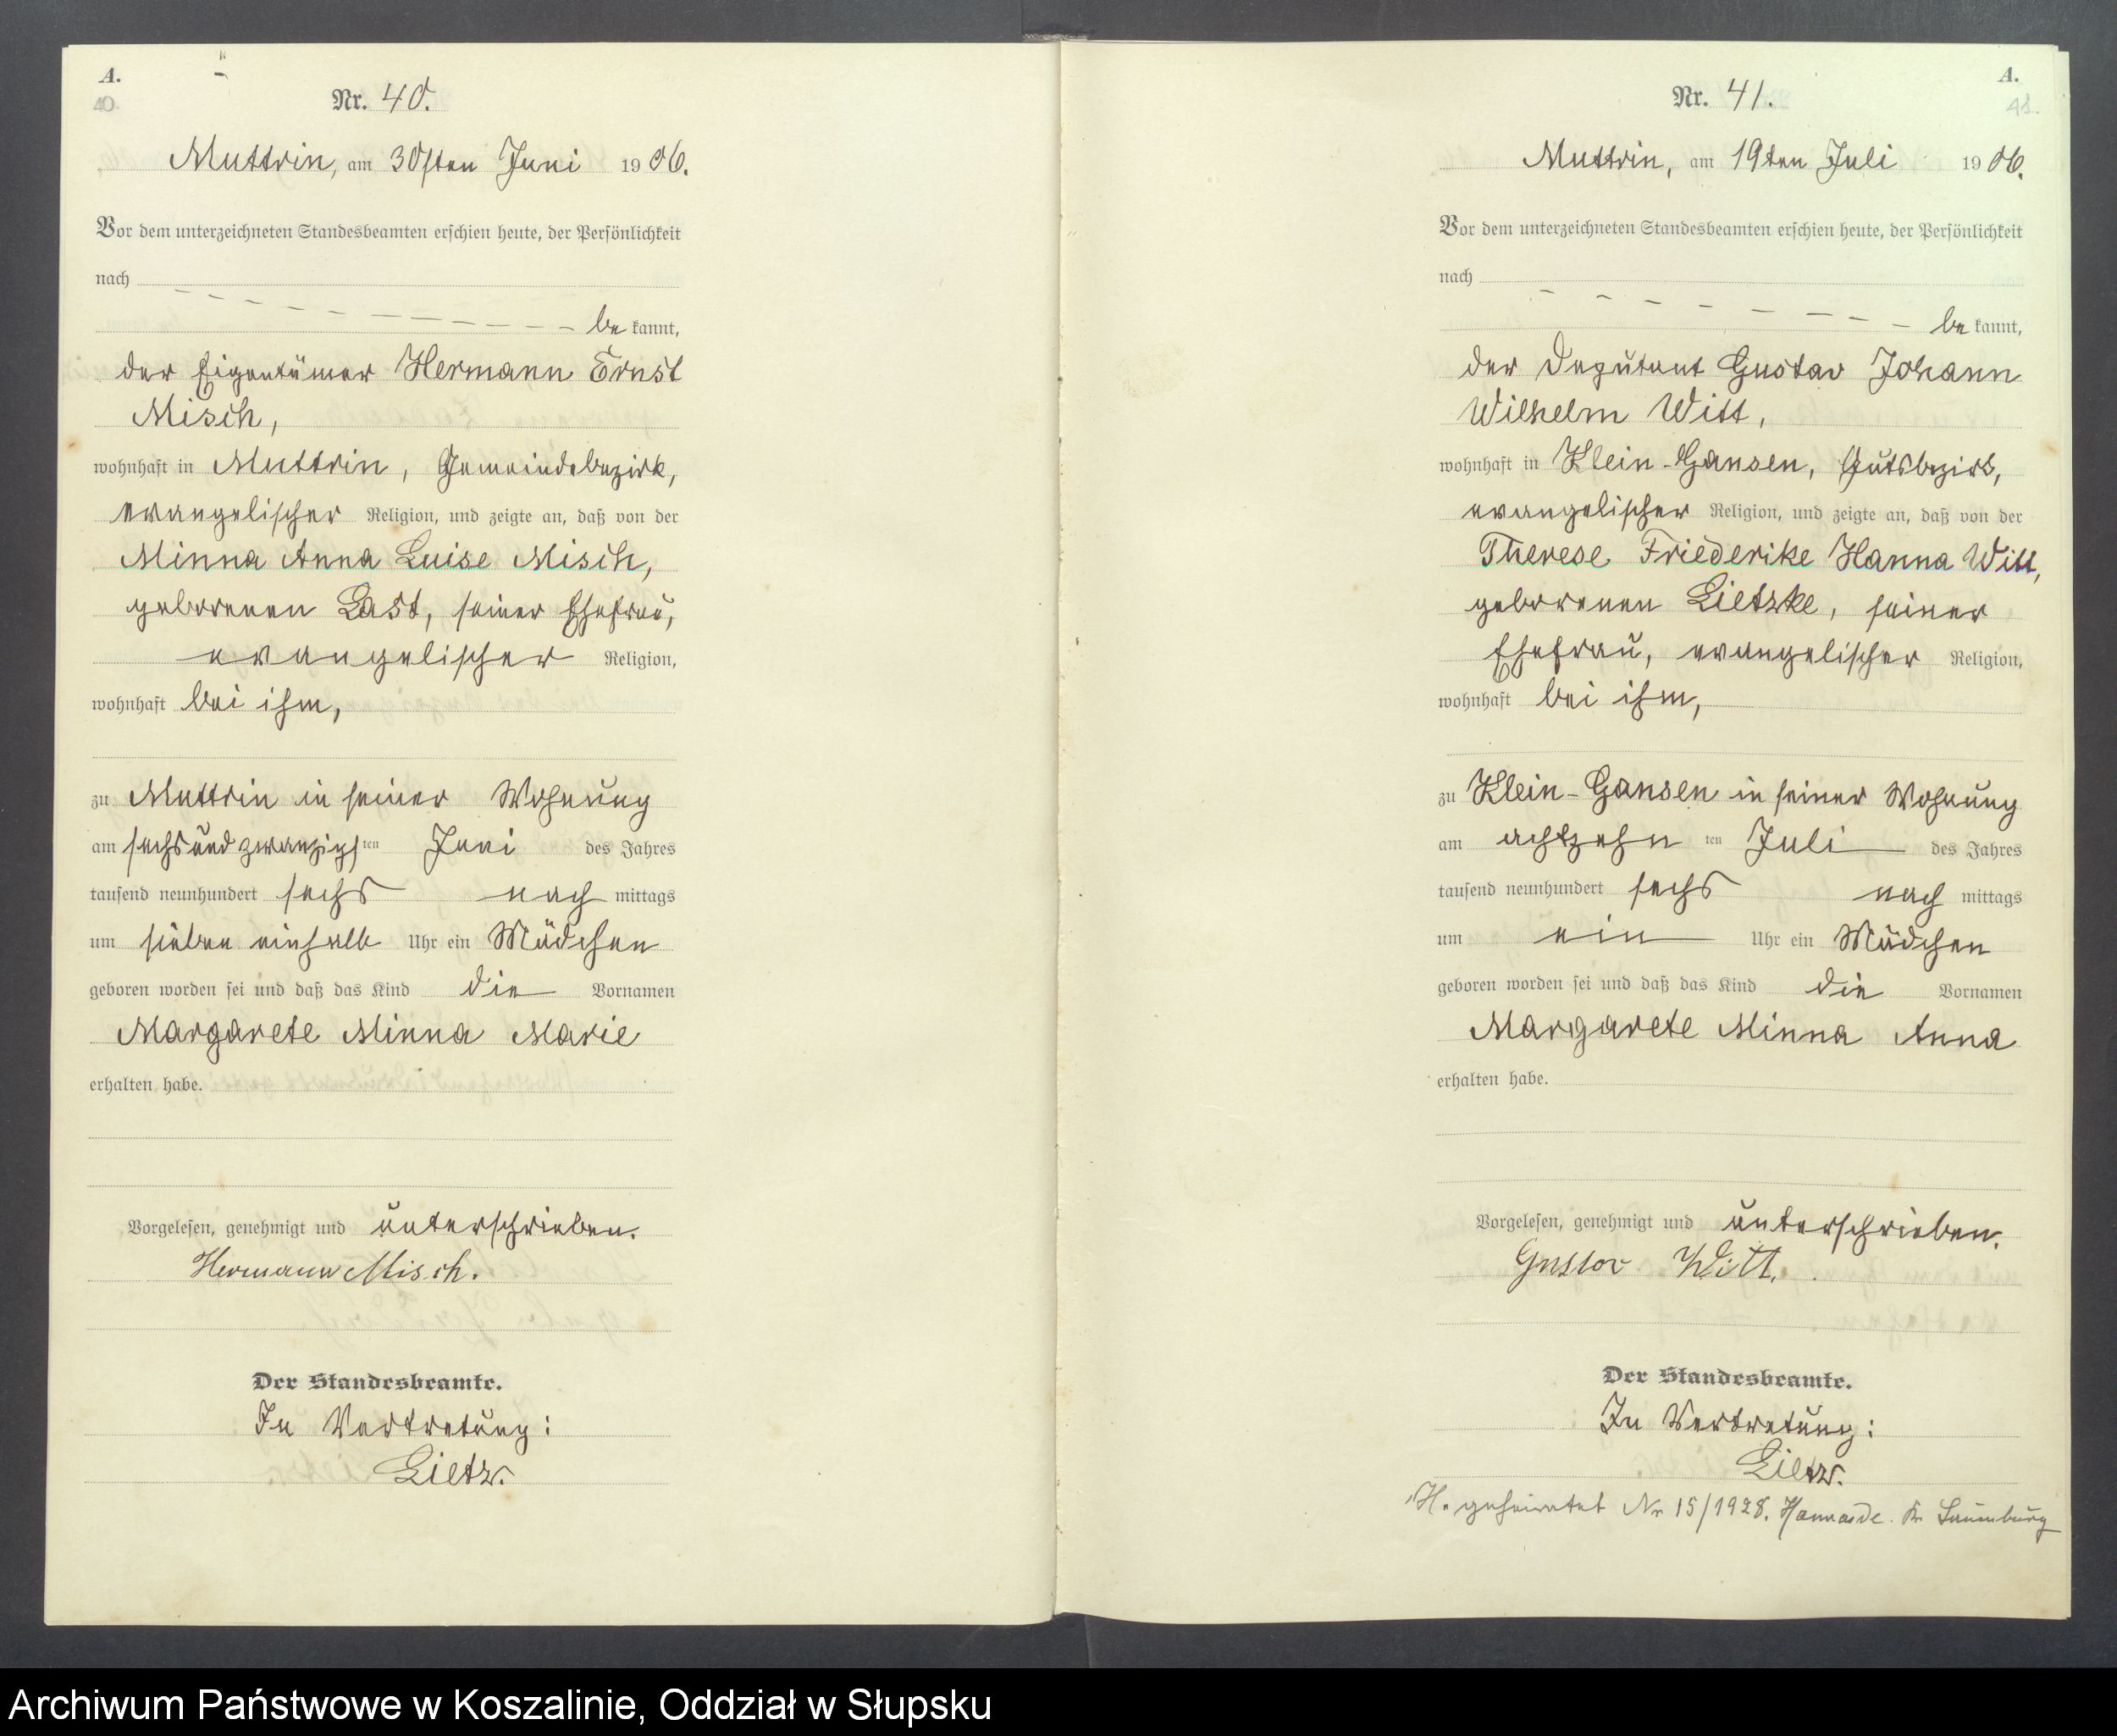 A.
40.
Nr. 40.
Muttrin, am 30sten Juni 1906.
Vor dem unterzeichneten Standesbeamten erschien heute, der Persönlichkeit
nach
be kannt,
der Eigentümer Hermann Ernst
Misch,
wohnhaft in Muttrin, Gemeindebezirk,
evangelischer Religion, und zeigte an, daß von der
Minna Anna Luise Misch,
geborenen Last, seiner Ehefrau,
evangelischer Religion,
wohnhaft bei ihm,
zu Muttrin in seiner Wohnung
am sechsundzwanzigsten Juni des Jahres
tausend neunhundert sechs nach mittags
um sieben einhalb Uhr ein Mädchen
geboren worden sei und daß das Kind die Vornamen
Margarete Minna Marie
erhalten habe.
Vorgelesen, genehmigt und unterschrieben.
Hermann Misch.
Der Standesbeamte.
In Vertretung:
Lietz.
A.
41.
Nr. 41.
Muttrin, am 19ten Juli 1906.
Vor dem unterzeichneten Standesbeamten erschien heute, der Persönlichkeit
nach
be kannt,
der Deputant Gustav Johann
Wilhelm Witt,
wohnhaft in Klein-Gansen, Gutsbezirk,
evangelischer Religion, und zeigte an, daß von der
Therese Friederike Hanna Witt,
geborenen Lietzke, seiner
Ehefrau, evangelischer Religion,
wohnhaft bei ihm,
zu Klein-Gansen in seiner Wohnung
am achtzehn ten Juli des Jahres
tausend neunhundert sechs nach mittags
um ein Uhr ein Mädchen
geboren worden sei und daß das Kind die Vornamen
Margarete Minna Anna
erhalten habe.
Vorgelesen, genehmigt und unterschrieben.
Gustav Witt.
Der Standesbeamte.
In Vertretung:
Lietz.
H. geheiratet Nr 15/1928. Kr. Lauenburg
Archiwum Państwowe w Koszalinie, Oddział w Słupsku